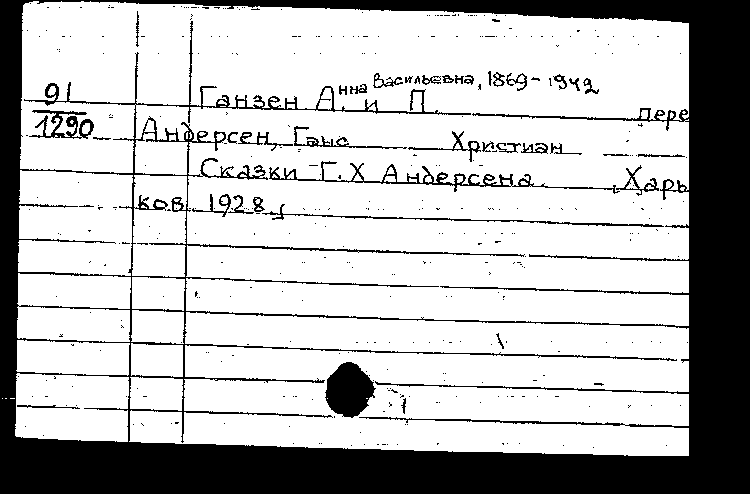 Ганзен Анна Васильевна, 1869-1942 и П. пере
91
1290
Андерсен, Ганс Христиан
Сказки Г. Х Андерсена. Харь
ков 1928.